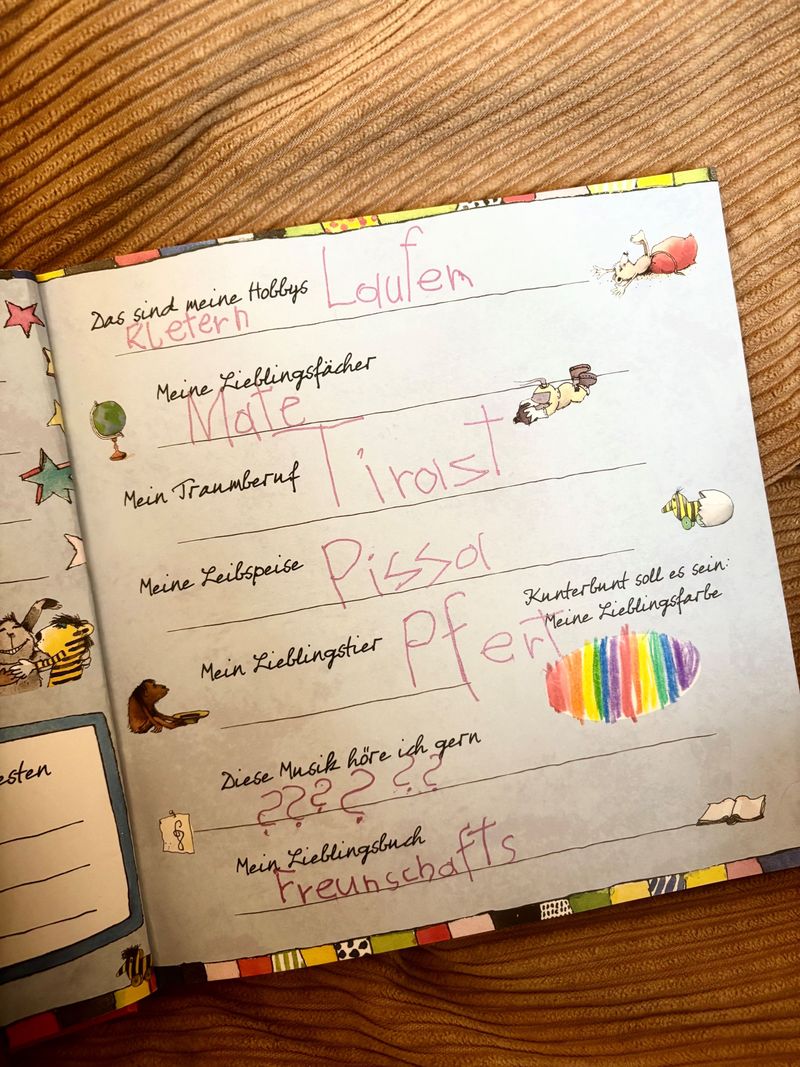 Das sind meine Hobbys Laufen
Kletern
Meine Lieblingsfächer
Mate
Mein Traumberuf Tirast
Meine Leibspeise Pissa
Kunterbunt soll es sein:
Meine Lieblingsfarbe
Mein Lieblingstier Pfert
Diese Musik höre ich gern
??????
Mein Lieblingsbuch
Freunschafts
esten